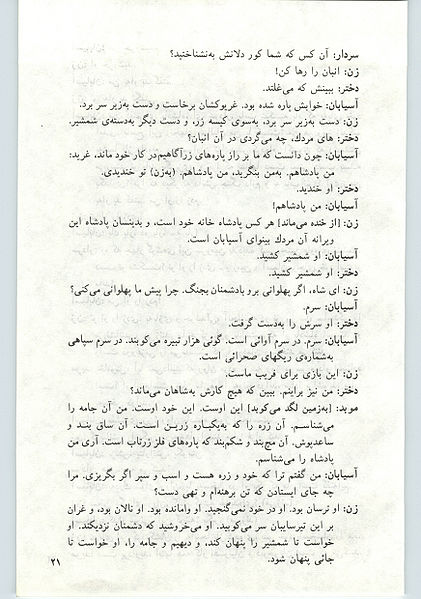 سردار: آن کس که شما کور دلانش به‌نشناختید؟
زن: انبان را رها کن!
دختر: ببینش که می‌غلتد.
آسیابان: خوابش پاره شده بود. غریوکشان برخاست و دست به‌زیر سر برد.
زن: دست به‌زیر سر برد، به‌سوی کیسه زر، و دست دیگر به‌دسته‌ی شمشیر.
دختر: های مردك، چه می‌گردی در آن انبان؟
آسیابان: چون دانست که ما بر راز پاره‌های زرآگاهیم در کار خود ماند، غرید:
من پادشاهم. به‌من بنگرید، من پادشاهم. (به‌زن) تو خندیدی.
دختر: او خندید.
آسیابان: من پادشاهم!
زن: [از خنده می‌ماند] هر کس پادشاه خانه خود است، و بدینسان پادشاه این
ویرانه آن مردك بینوای آسیابان است.
آسیابان: او شمشیر کشید.
دختر: او شمشیر کشید.
زن: ای شاه، اگر پهلوانی برو بادشمنان بجنگ. چرا پیش ما پهلوانی می‌کنی؟
آسیابان: سرم.
دختر: او سرش را به‌دست گرفت.
آسیابان: سرم. در سرم آوائی است. گوئی هزار تبیره می‌کوبند. در سرم سپاهی
به‌شماره‌ی ریگهای صحرائی است.
زن: این بازی برای فریب ماست.
دختر: من نیز برآنیم. ببین که هیچ کارش به‌شاهان می‌ماند؟
موبد: [به‌زمین لگد می‌کوبد] این اوست. این خود اوست. من آن جامه را
می‌شناسم. آن زره را که به‌یکباره زرین است. آن ساق بند و
ساعدپوش. آن مچ‌بند و شکم‌بند که پاره‌های فلز زرتاب است. آری من
پادشاه را می‌شناسم.
آسیابان: من گفتم ترا که خود و زره هست و اسب و سپر اگر بگریزی. مرا
چه جای ایستادن که تن برهنه‌ام و تهی دست؟
زن: او ترسان بود. او در خود نمی‌گنجید. او وامانده بود. او نالان بود، و غران
بر این تیرسایبان سر می‌کوبید. او می‌خروشید که دشمنان نزدیکند. او
خواست تا شمشیر را پنهان کند، و دیهیم و جامه را، او خواست تا
جائی پنهان شود.
۲۱